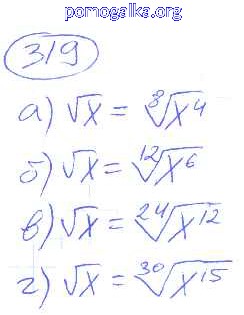 pomogalka.org
319
а) √x = ⁸√x⁴
б) √x = ¹²√x⁶
в) √x = ²⁴√x¹²
г) √x = ³⁰√x¹⁵